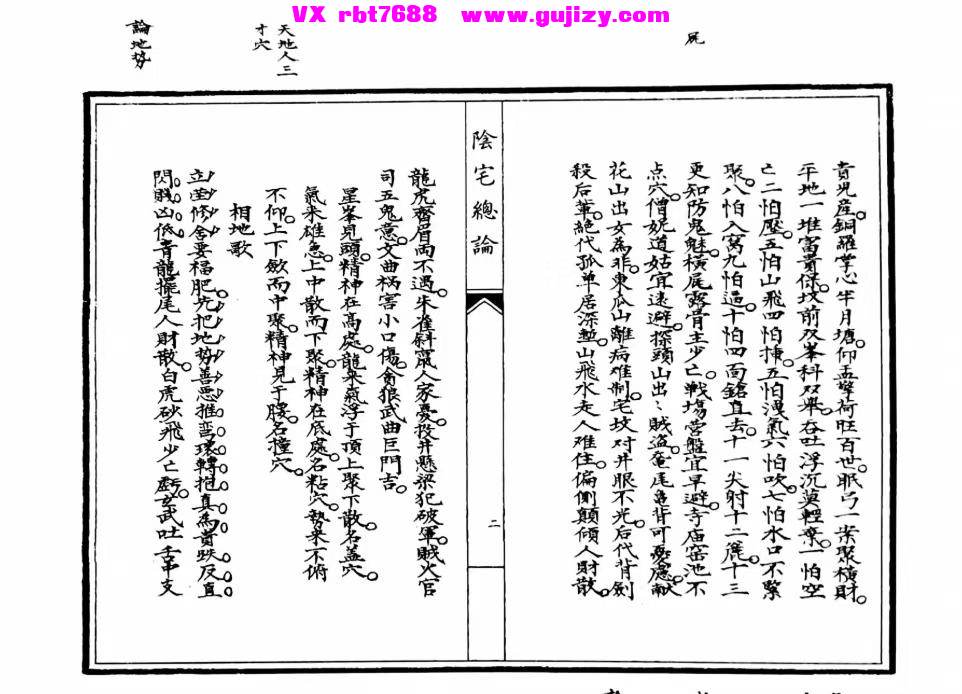 VX rbt7688 www.gujizy.com
屍
天地人三
寸穴
論地势
貴児産。銅羅掌心半月塘。仰盂擎荷旺百世。眠弓一案聚橫財。
平地一堆富貴保。坟前双峯科双舉。吞吐浮沉莫輕棄。一怕空
亡二怕壓。五怕山飛四怕揀。五怕漠氣六怕吹。七怕水口不緊
聚。八怕入窩九怕逼。十怕四面鎗直去。十一尖射十二麓。十三
更知防鬼魅。橫屍露骨主少亡。戰塲营盤宜早避。寺庙窑池不
点穴。僧妮道姑宜遠避。探頭山出、賊盗。奄尾亀背可憂慮。献
花山出女為非。東瓜山離病难制。宅坟对井眼不光。后代背劍
殺后輩。絕代孤单居深塹。山飛水走人难住。偏側顛傾人財散。
陰宅總論
二
龍虎齊眉而不遇。朱雀斜窜人家憂。投井懸梁犯破軍。賊火官
司五鬼意。文曲祸害小口傷。貪狼武曲巨門吉。
星峯見頭。精神在高處。龍来氣浮于頂上聚下散。名盖穴。
氣来雄急。上中散而下聚。精神在底處。名粘穴。勢来不俯
不仰。上下斂而中聚。精神見于腰。名撞穴。
相地歌
立茔修舍要福肥。先把地势善恶推。弯環轉抱真為貴。跌反直
閃賤凶低。青龍擺尾人財散。白虎砂飛少亡虧。玄武吐舌串支